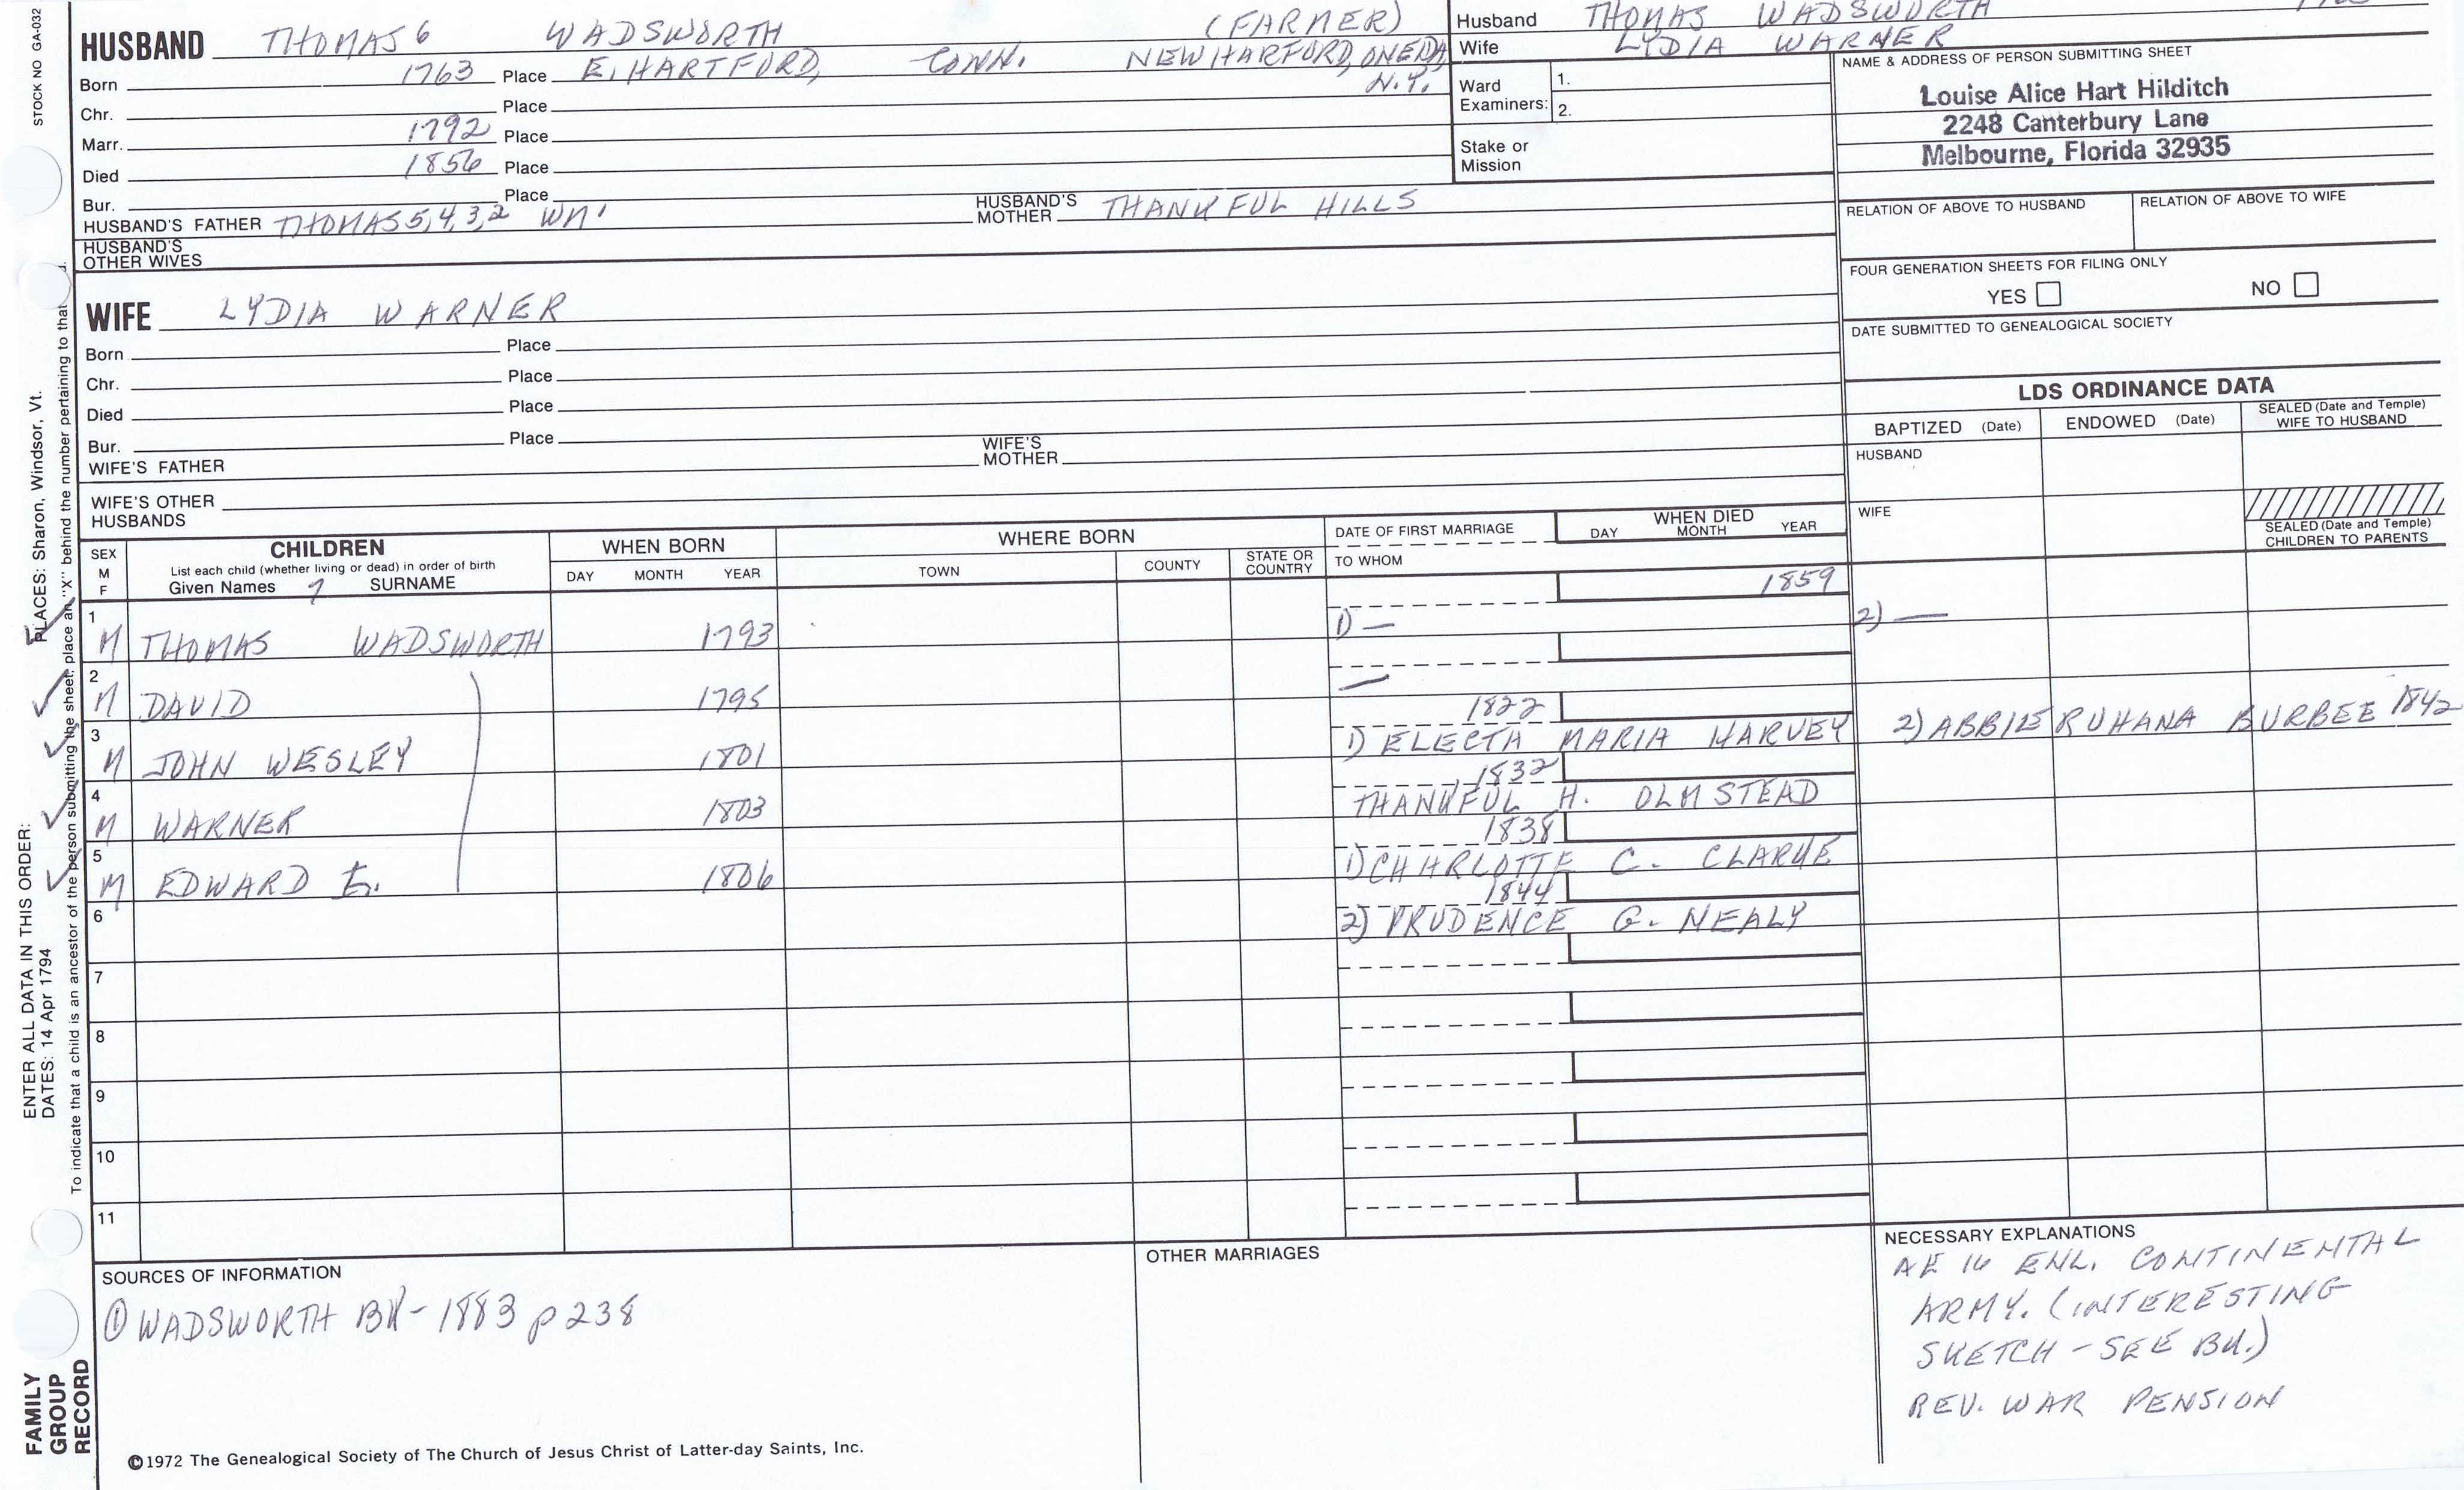 STOCK NO GA-032
HUSBAND THOMAS 6 WADSWORTH (FARMER)
Born 1763 Place E. HARTFORD, CONN. NEW HARFORD, ONEDA, N.Y.
Chr. Place
Marr. 1792 Place
Died 1856 Place
Bur. Place
HUSBAND'S FATHER THOMAS 5, 4, 3, 2 WM' HUSBAND'S MOTHER THANKFUL HILLS
HUSBAND'S OTHER WIVES
Husband THOMAS WADSWORTH
Wife LYDIA WARNER
Ward Examiners: 1.
2.
Stake or Mission
NAME & ADDRESS OF PERSON SUBMITTING SHEET
Louise Alice Hart Hilditch
2248 Canterbury Lane
Melbourne, Florida 32935
RELATION OF ABOVE TO HUSBAND RELATION OF ABOVE TO WIFE
FOUR GENERATION SHEETS FOR FILING ONLY
YES NO
DATE SUBMITTED TO GENEALOGICAL SOCIETY
WIFE LYDIA WARNER
Born Place
Chr. Place
Died Place
Bur. Place
WIFE'S FATHER WIFE'S MOTHER
WIFE'S OTHER HUSBANDS
LDS ORDINANCE DATA
BAPTIZED (Date) ENDOWED (Date) SEALED (Date and Temple) WIFE TO HUSBAND
HUSBAND
WIFE
SEALED (Date and Temple) CHILDREN TO PARENTS
SEX M F
CHILDREN
List each child (whether living or dead) in order of birth
Given Names 7 SURNAME
WHEN BORN
DAY MONTH YEAR
WHERE BORN
TOWN COUNTY STATE OR COUNTRY
DATE OF FIRST MARRIAGE
TO WHOM
WHEN DIED
DAY MONTH YEAR
1 M THOMAS WADSWORTH 1793 1) — 1859 2) —
2 M DAVID 1795 —
3 M JOHN WESLEY 1801 1822 1) ELECTA MARIA HARVEY 2) ABBIE RUHANA BURBEE 1842
4 M WARNER 1803 1832 THANKFUL H. OLMSTEAD
5 M EDWARD E. 1806 1838 1) CHARLOTTE C. CLARKE
6 1844 2) PRUDENCE G. NEALY
7
8
9
10
11
SOURCES OF INFORMATION
① WADSWORTH BK - 1883 p 238
OTHER MARRIAGES
NECESSARY EXPLANATIONS
AE 16 ENL. CONTINENTAL
ARMY. (INTERESTING
SKETCH - SEE BK.)
REV. WAR PENSION
©1972 The Genealogical Society of The Church of Jesus Christ of Latter-day Saints, Inc.
FAMILY
GROUP
RECORD
ENTER ALL DATA IN THIS ORDER:
DATES: 14 Apr 1794 PLACES: Sharon, Windsor, Vt.
To indicate that a child is an ancestor of the person submitting the sheet, place an "X" behind the number pertaining to that